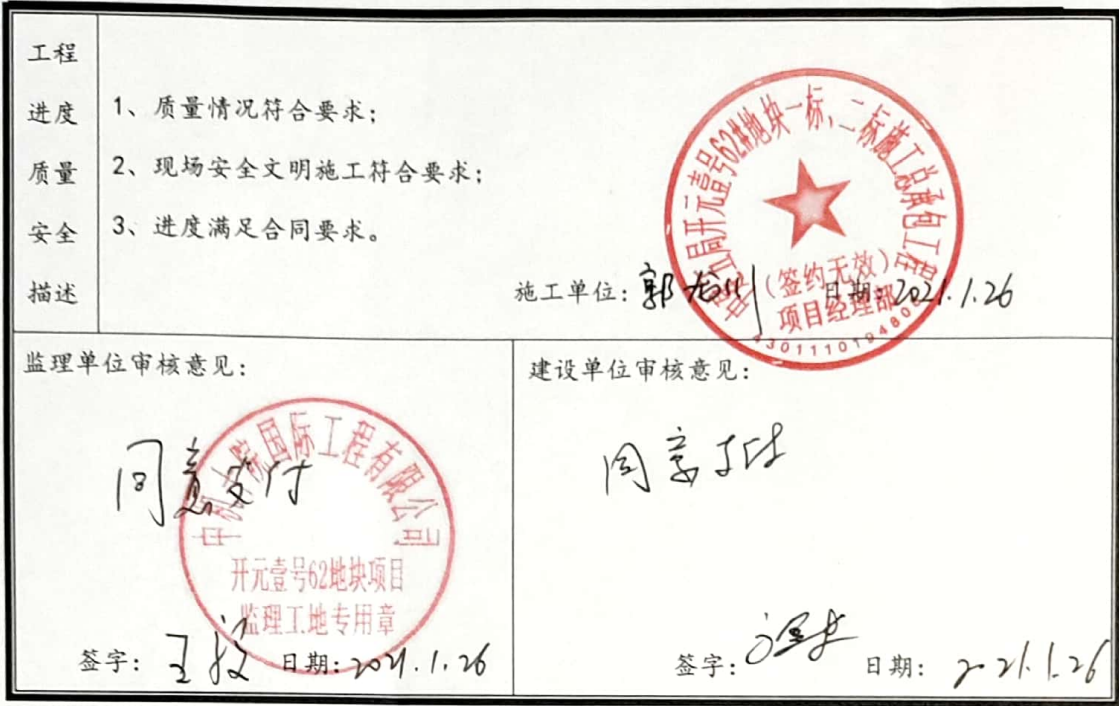 工程
进度
质量
安全
描述
1、质量情况符合要求；
2、现场安全文明施工符合要求；
3、进度满足合同要求。
施工单位：郭 日期：2021.1.26
局开元壹号62#地块一标、二标施工总承包工程
（签约无效）
项目经理部
监理单位审核意见：
同意支付
中机十院国际工程有限公司
开元壹号62地块项目
监理工地专用章
签字：王毅 日期：2021.1.26
建设单位审核意见：
同意支付
签字： 日期：2021.1.26